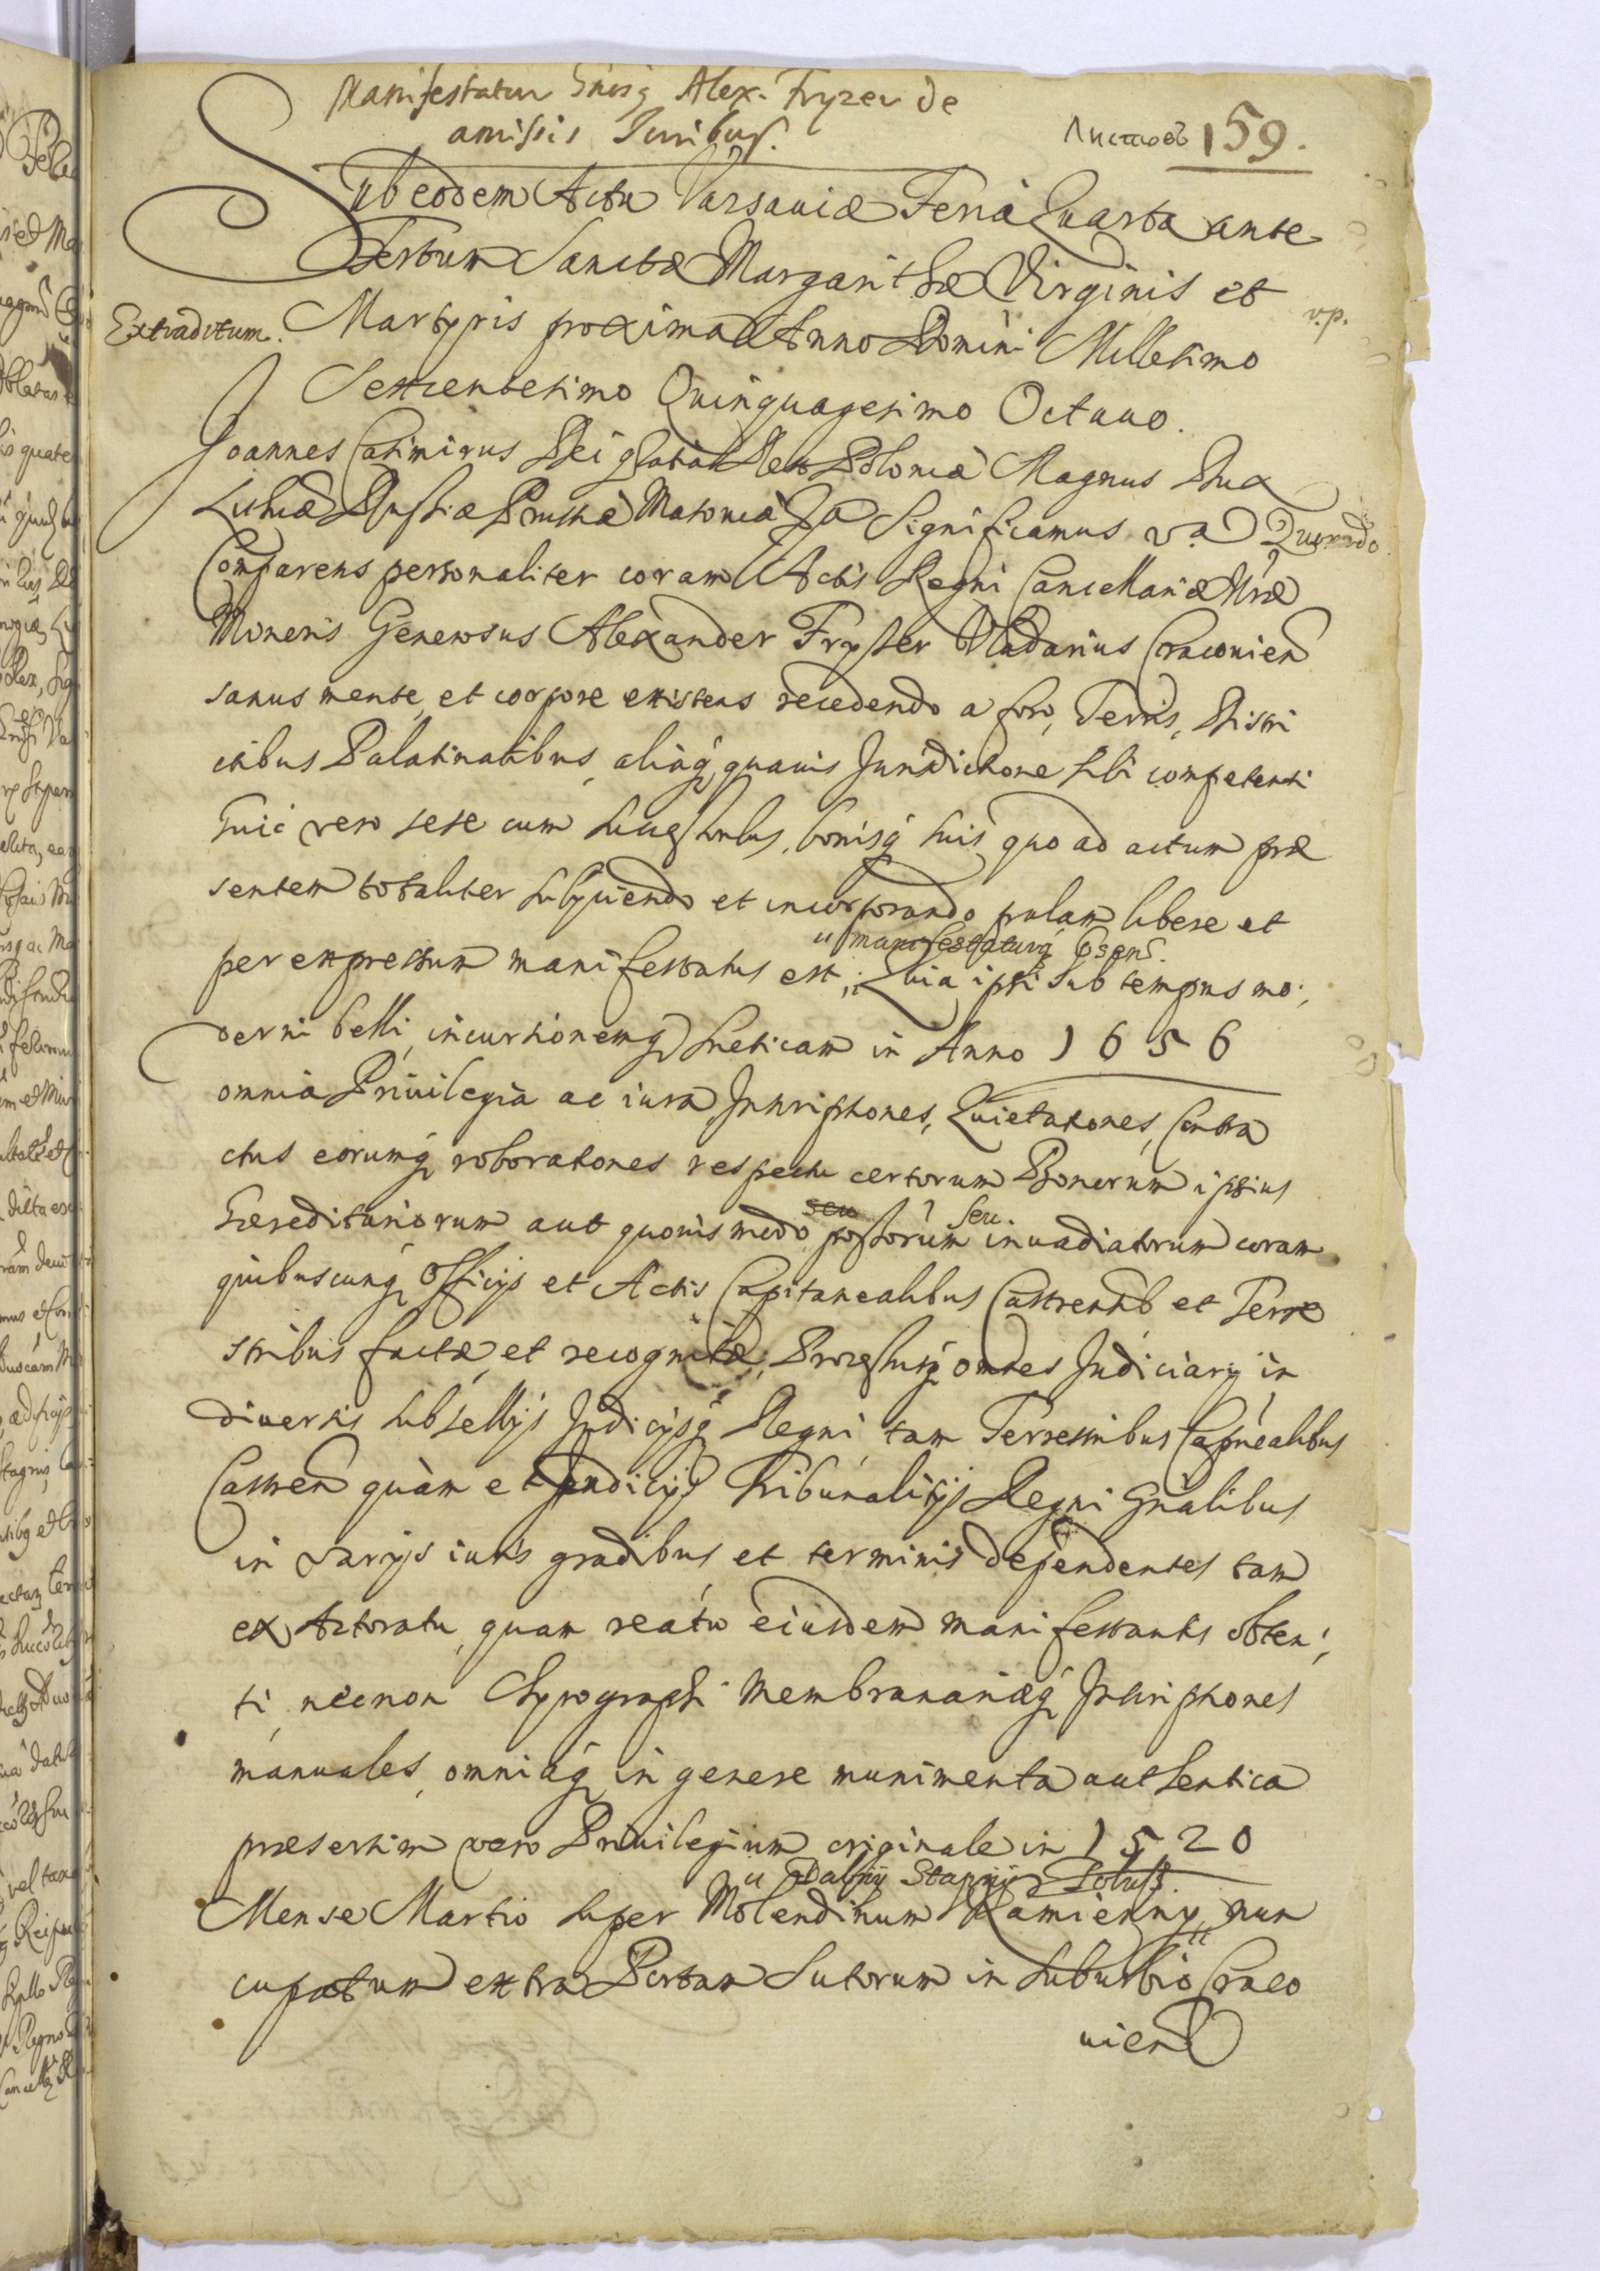 Manifestatur Gnosq Alex. Fryzer de
amissis Juribus.
Листовъ 159.
Sub eodem Actu Varsaviæ Feria Quarta ante
Festum Sanctæ Margarithæ Virginis et
v.p.
Extraditum.
Martyris proxima Anno Domini Millesimo
Sexcentesimo Quinquagesimo Octavo.
Joannes Casimirus Dei gratia Rex Poloniæ Magnus Dux
Lithuæ Russiæ Prussiæ Masoviæ Significamus Quomodo
Comparens personaliter coram Actis Regni Cancellariæ Nræ
Minoris Generosus Alexander Frysser Vladarius Cracovien
sanus mente et corpore existens recedendo a foro, Terris, Distri
ctibus Palatinatibus, aliaq quavis Jurisdictione sibi competenti
huic vero sese cum successoribus, bonisq suis quo ad actum præ
sentem totaliter subyciendo et incorporando palam libere et
manifestaturq
per expressum manifestatus est, Quia ipsi sub tempus mo
derni belli incursionemq Sueticam in Anno 1656
omnia Privilegia ac iura Inscriptiones, Quietationes, Contra
ctus eorumq roborationes respectu certorum Bonorum ipsius
seu seu
hæreditariorum aut quovis modo inuadiatorum coram
quibuscunq Officijs et Actis Capitanealibus Castrensib et Terre
stribus factæ et recognitæ, Processusq omnes Judiciary in
diversis subsellijs Judicijsq Regni tam Terrestribus Capnealibus
Castren quàm et Judicijs Tribunalitijs Regni Gnalibus
in varijs iuris gradibus et terminis dependentes tam
ex Actoratu quam reatu eiusdem manifestantis obten
ti necnon Chyrographi Membranariæq Inscriptiones
manuales, omniaq in genere munimenta authentica
præsertim vero Privilegium originale in 1520
Mense Martio super Molendinum Kamienny nun
cupatum extra Portam Sutorum in suburbio Craco
vien